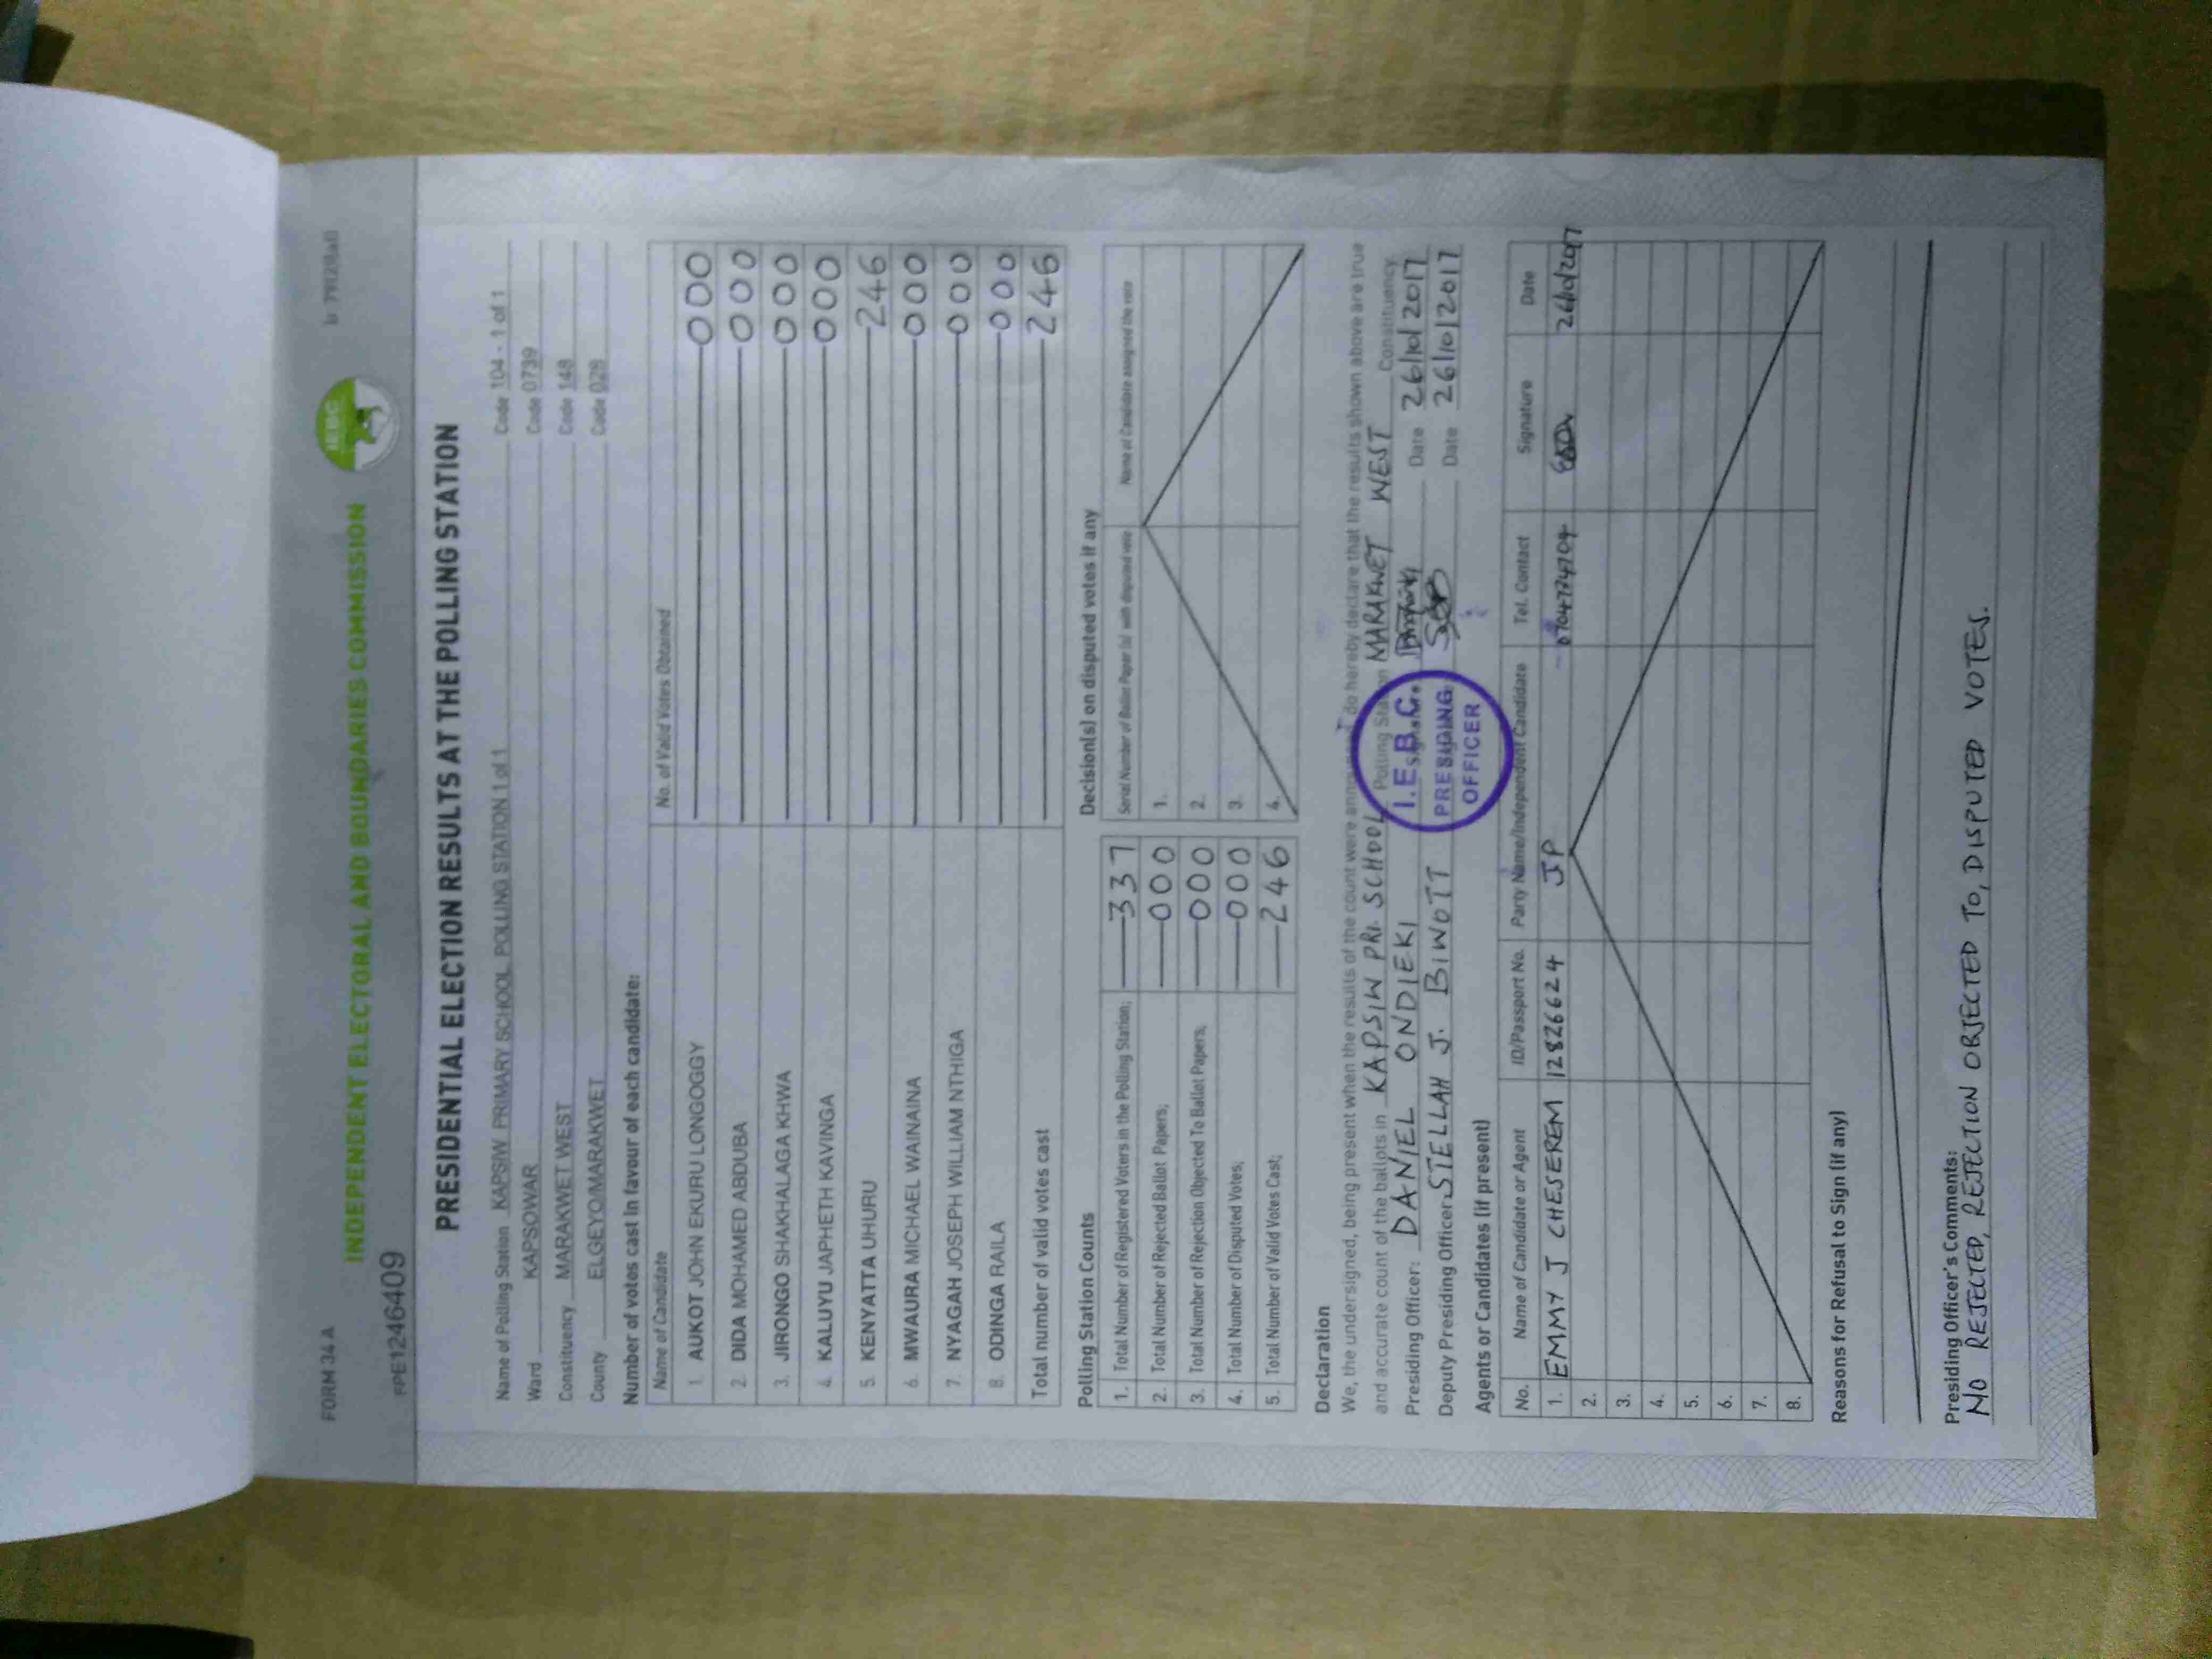 FORM 34 A
INDEPENDENT ELECTORAL AND BOUNDARIES COMMISSION
IEBC
FPE1246409
PRESIDENTIAL ELECTION RESULTS AT THE POLLING STATION
Name of Polling Station KAPSIW PRIMARY SCHOOL POLLING STATION 1 of 1 Code 104 - 1 of 1
Ward KAPSOWAR Code 0739
Constituency MARAKWET WEST Code 148
County ELGEYO/MARAKWET Code 028
Number of votes cast in favour of each candidate:
Name of Candidate No. of Valid Votes Obtained
1. AUKOT JOHN EKURU LONGOGGY 000
2. DIDA MOHAMED ABDUBA 000
3. JIRONGO SHAKHALAGA KHWA 000
4. KALUYU JAPHETH KAVINGA 000
5. KENYATTA UHURU 246
6. MWAURA MICHAEL WAINAINA 000
7. NYAGAH JOSEPH WILLIAM NTHIGA 000
8. ODINGA RAILA 000
Total number of valid votes cast 246
Polling Station Counts
1. Total Number of Registered Voters in the Polling Station; 337
2. Total Number of Rejected Ballot Papers; 000
3. Total Number of Rejection Objected To Ballot Papers; 000
4. Total Number of Disputed Votes; 000
5. Total Number of Valid Votes Cast; 246
Decision(s) on disputed votes if any
Serial Number of Ballot Paper (s) with disputed vote Name of Candidate assigned the vote
1.
2.
3.
4.
Declaration
We, the undersigned, being present when the results of the count were announced, do hereby declare that the results shown above are true
and accurate count of the ballots in KAPSIW PRI. SCHOOL Polling Station MARAKWET WEST Constituency.
Presiding Officer: DANIEL ONDIEKI Date 26/10/2017
Deputy Presiding Officer STELLAH J. BIWOTT Date 26/10/2017
I.E.B.C.
PRESIDING
OFFICER
Agents or Candidates (if present)
No. Name of Candidate or Agent ID/Passport No. Party Name/Independent Candidate Tel. Contact Signature Date
1. EMMY J CHESEREM 12826624 JP 26/10/2017
2.
3.
4.
5.
6.
7.
8.
Reasons for Refusal to Sign (if any)
Presiding Officer's Comments:
NO REJECTED, REJECTION OBJECTED TO, DISPUTED VOTES.